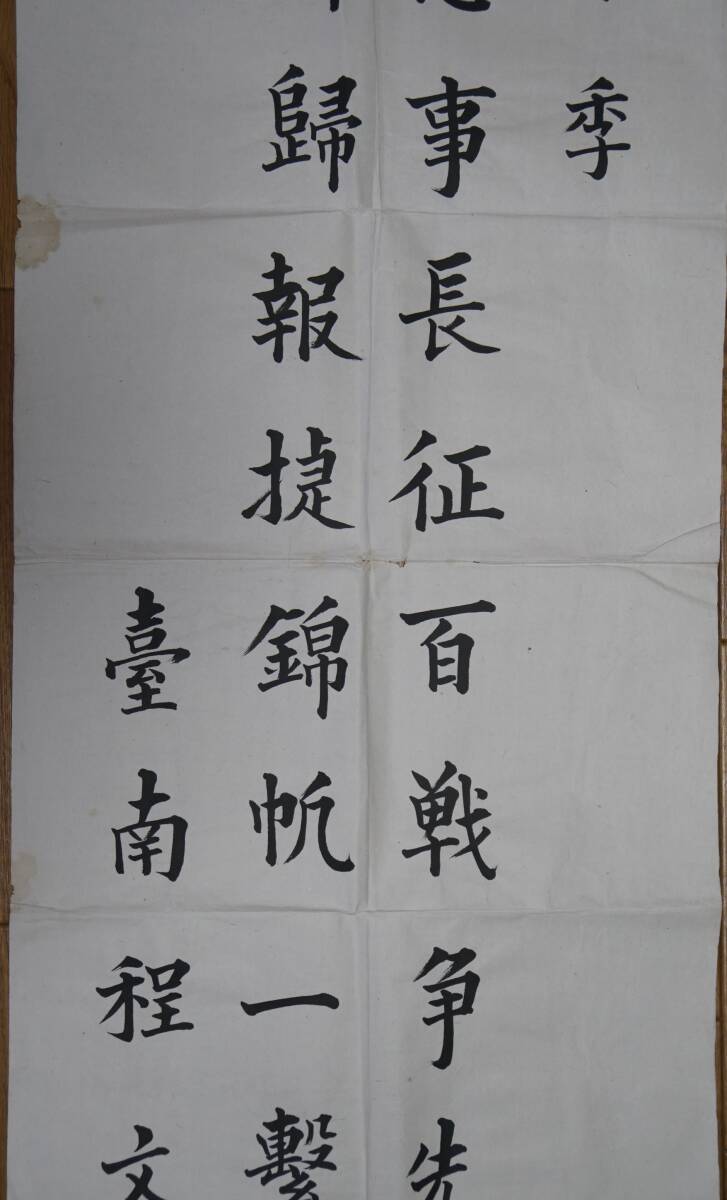 季
事長征百戦争先
歸報捷錦帆一繫
臺南程文